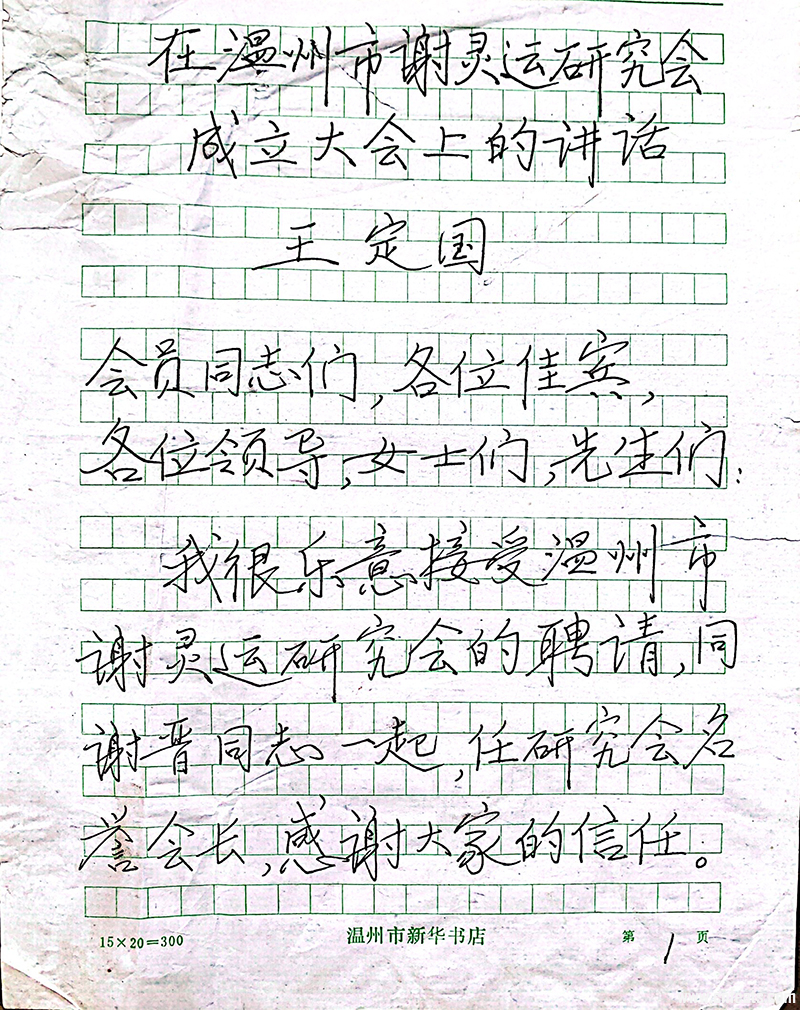 在温州市谢灵运研究会
成立大会上的讲话
王定国
会员同志们,各位佳宾,
各位领导,女士们,先生们:
我很乐意接受温州市
谢灵运研究会的聘请,同
谢晋同志一起,任研究会名
誉会长,感谢大家的信任。
15×20=300 温州市新华书店 第1页